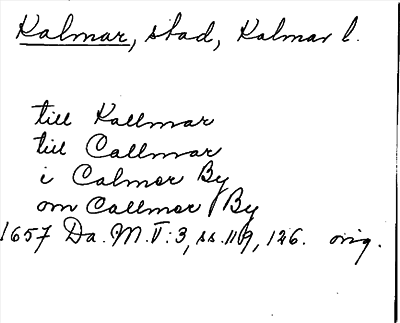 Kalmar, stad, Kalmar l.
till Kallmar
till Callmar
i Calmer By
om Callmer By
1657 Da. M. V:3, ss. 119, 126. orig.